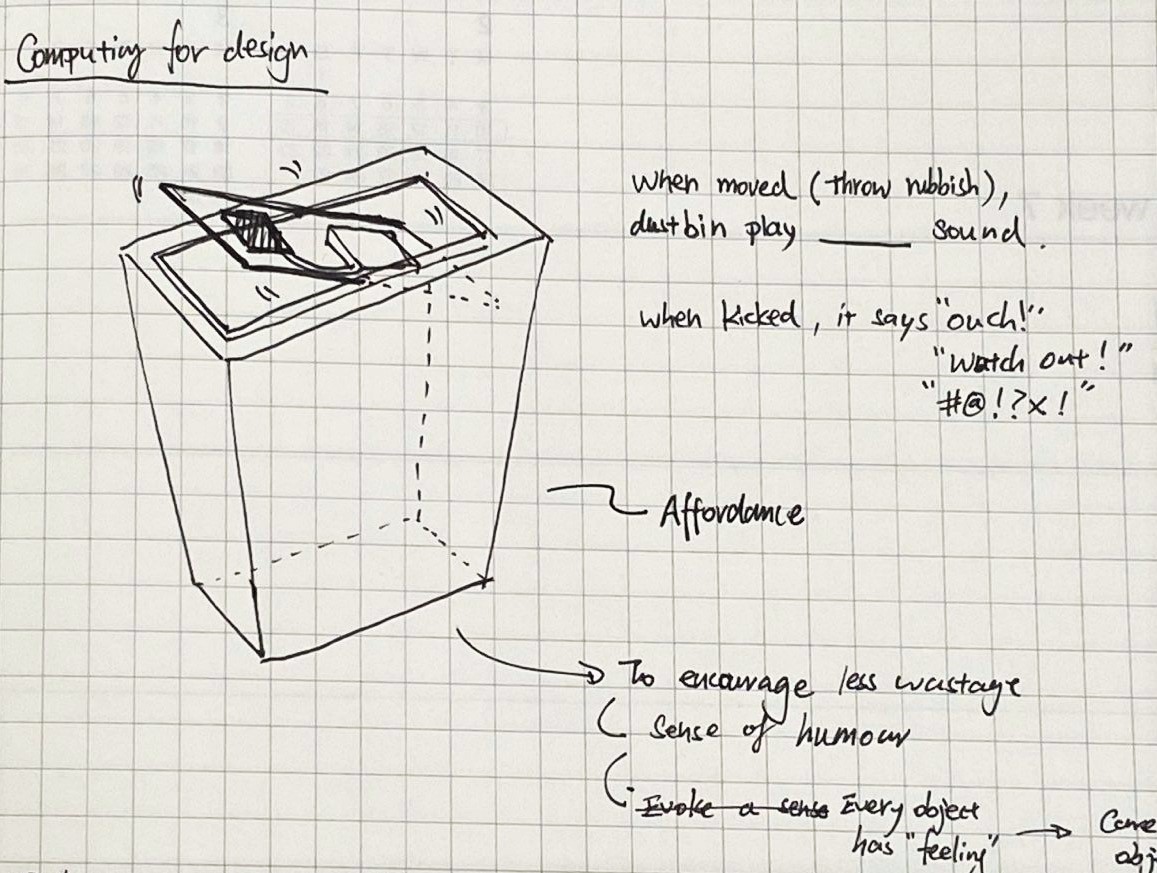 Computing for design
when moved (throw rubbish),
dustbin play ______ sound.
when kicked, it says "ouch!"
"watch out!"
"#@!?x!"
Affordance
To encourage less wastage
Sense of humour
Evoke a sense Every object
has "feeling"